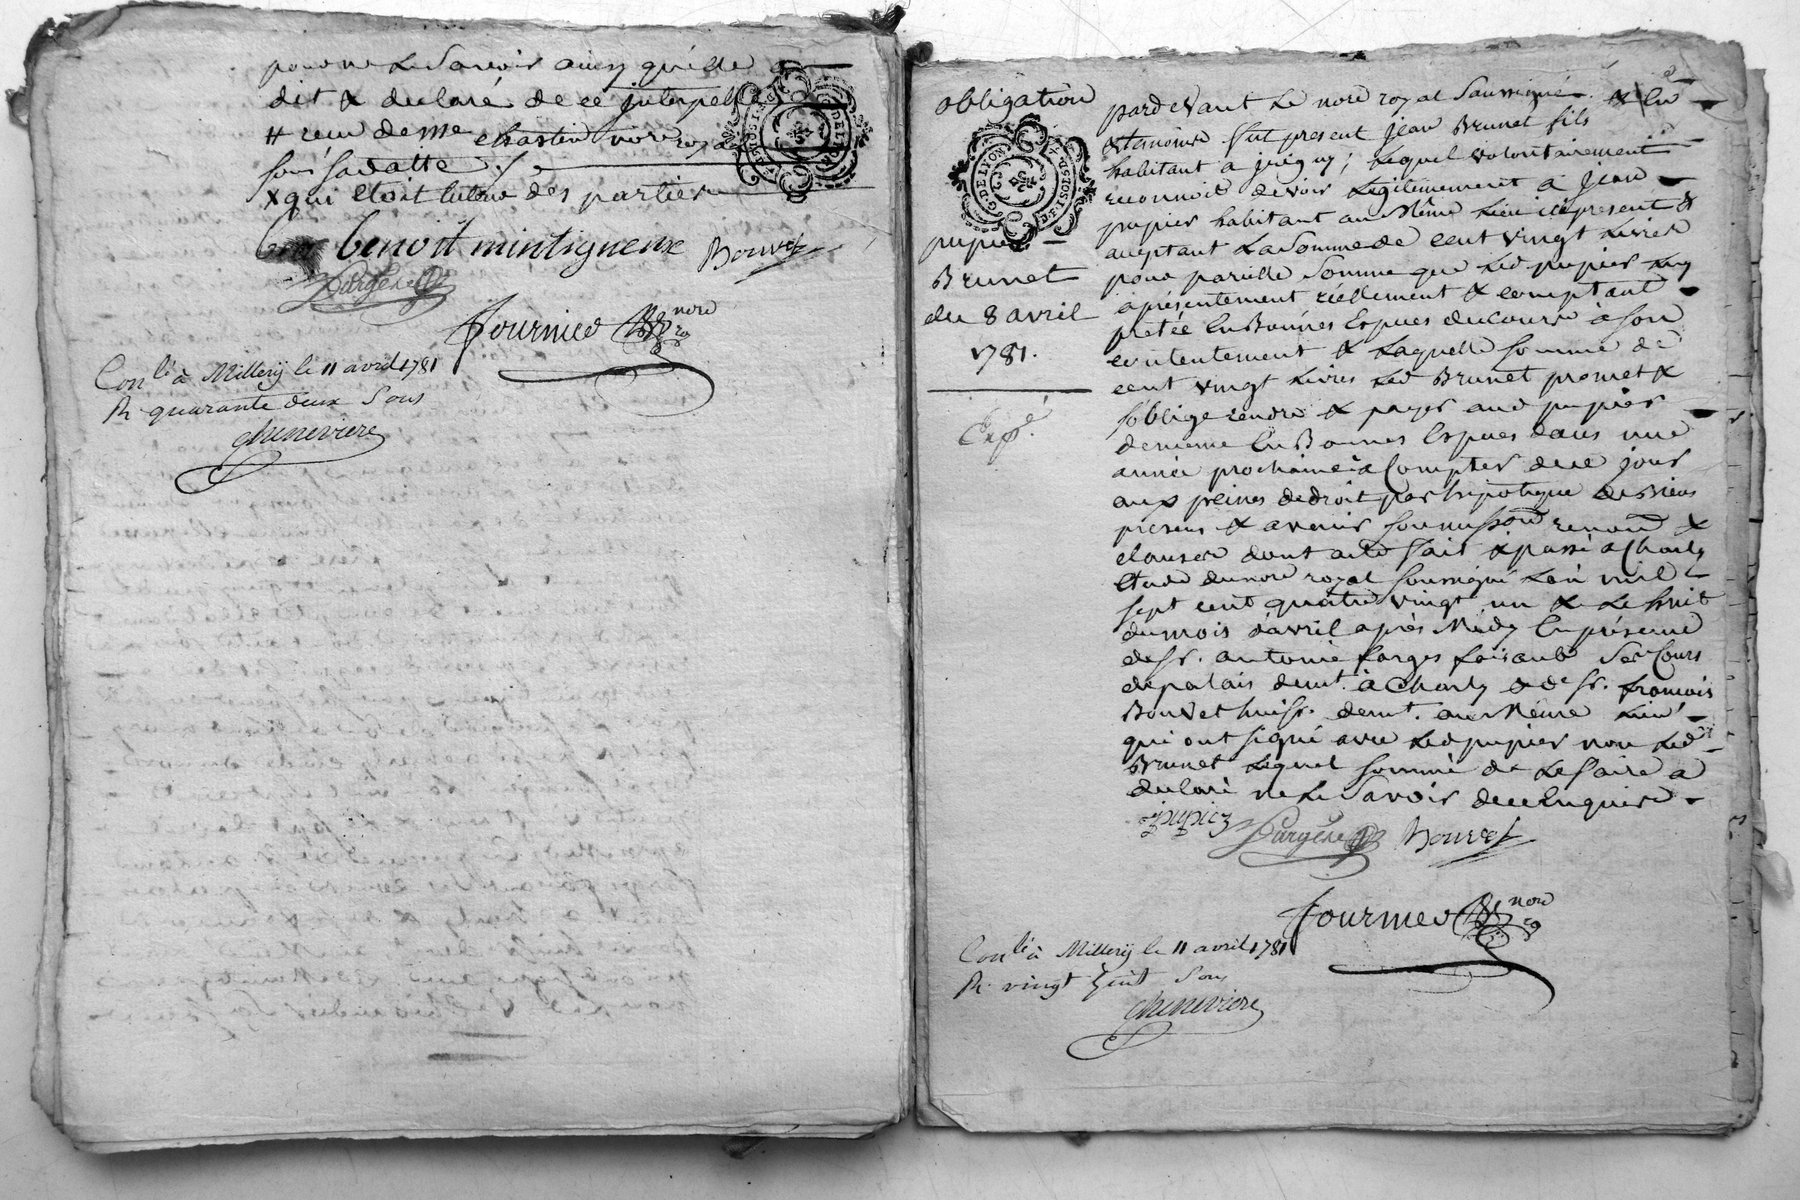 pour ne Le Savoir ainsy quélle a
dit & declaré de ce jnterpellé
# reçu de me chastin nore roy al
sous sa datte ./.
x qui Etoit tuteur des parties
benoit mintigneux Bouvet
fargère
fournier nore ro
Conlé à Millery le 11 avril 1781
R. quarante deux Sous
chenevière
obligation
G. DE LYON
pupier
Brunet
du 8 avril
1781.
Expé.
pardevant Le nore royal Soussigné & En
& temoins fut present Jean Brunet fils
habitant a jrigny ; Lequel volontairement
reconnoit devoir Legitimement a Jean
pupier habitant au Même Lieu icy present &
acceptant La Somme de cent vingt Livres
pour pareille Somme que Led pupier Luy
a présentement réellement & comptant
pretée En Bonnes Especes du cours a son
contentement & Laquelle Somme de
cent vingt Livres Led Brunet promet &
s'oblige rendre & payer aud pupier
de meme En Bonnes Especes dans une
année prochaine a Compter de ce jour
aux peines de droit par hipoteque de Biens
presens & avenir soumission renond &
clauses dont acte fait & passé a Charly
Etude du nore royal soussigné L'an mil
sept cent quatre vingt un & Le huit
du mois d'avril après Midy En présence
de sr. antoine farges faisant Ses Cours
de palais demt. à Charly & de sr. francois
Bouvet huissr. demt. au Même Lieu
qui ont signé avec Led pupier non Led
Brunet Lequel sommé de Le faire a
declaré ne Le Savoir de ce Enquis
j pupier fargère Bouvet
fournier nore ro
Conlé à Millery le 11 avril 1781
R. vingt huit Sous
chenevière